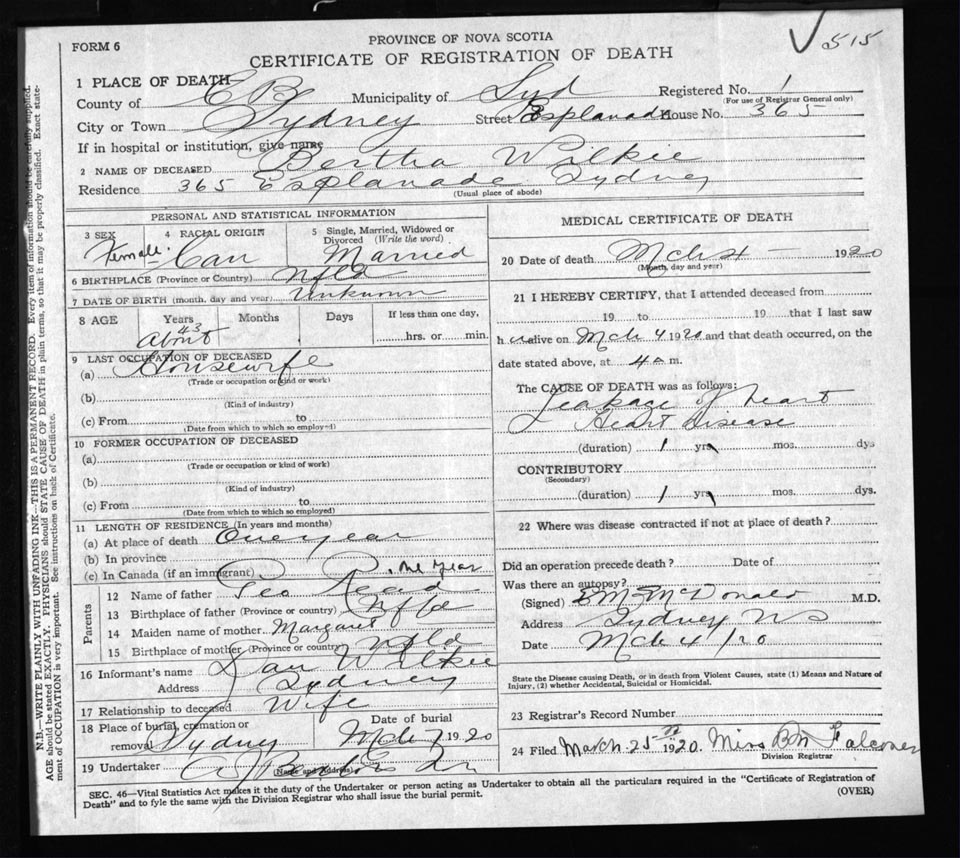 FORM 6
PROVINCE OF NOVA SCOTIA
CERTIFICATE OF REGISTRATION OF DEATH
515
1 PLACE OF DEATH—
County of C B Municipality of Syd Registered No. 1
(For use of Registrar General only)
City or Town Sydney Street Esplanade House No. 365
If in hospital or institution, give name
2 NAME OF DECEASED Bertha Wilkie
Residence 365 Esplanade Sydney
(Usual place of abode)
PERSONAL AND STATISTICAL INFORMATION
3 SEX Female
4 RACIAL ORIGIN Can
5 Single, Married, Widowed or Divorced (Write the word) Married
6 BIRTHPLACE (Province or Country) Nfld
7 DATE OF BIRTH (month, day and year) Unknown
8 AGE Years Months Days If less than one day,
About 43 hrs. or min.
9 LAST OCCUPATION OF DECEASED
(a) Housewife
(Trade or occupation or kind or work)
(b)
(Kind of industry)
(c) From to
(Date from which to which so employed)
10 FORMER OCCUPATION OF DECEASED
(a)
(Trade or occupation or kind of work)
(b)
(Kind of industry)
(c) From to
(Date from which to which so employed)
11 LENGTH OF RESIDENCE (In years and months)
(a) At place of death One year
(b) In province
(c) In Canada (if an immigrant) One Year
Parents
12 Name of father Geo Reed
13 Birthplace of father (Province or country) Nfld
14 Maiden name of mother Margaret
15 Birthplace of mother (Province or country) Nfld
16 Informant's name Dan Wilkie
Address Sydney
17 Relationship to deceased Wife
18 Place of burial, cremation or removal Sydney
Date of burial Mch 7 1920
19 Undertaker
(Name and Address)
MEDICAL CERTIFICATE OF DEATH
20 Date of death Mch 4 1920
(Month, day and year)
21 I HEREBY CERTIFY, that I attended deceased from
19 to 19 that I last saw
h er alive on Mch 4 1920 and that death occurred, on the
date stated above, at 4 a m.
The CAUSE OF DEATH was as follows:
Leakage of heart
Heart Disease
(duration) 1 yrs mos. dys
CONTRIBUTORY
(Secondary)
(duration) 1 yrs mos. dys.
22 Where was disease contracted if not at place of death?
Did an operation precede death? Date of
Was there an autopsy?
(Signed) McDonald M.D.
Address Sydney NS
Date Mch 4/20
State the Disease causing Death, or in death from Violent Causes, state (1) Means and Nature of
Injury, (2) whether Accidental, Suicidal or Homicidal.
23 Registrar's Record Number
24 Filed March 25th 1920. Miss B M Falconer
Division Registrar
SEC. 46—Vital Statistics Act makes it the duty of the Undertaker or person acting as Undertaker to obtain all the particulars required in the "Certificate of Registration of
Death" and to fyle the same with the Division Registrar who shall issue the burial permit.
(OVER)
N.B.—WRITE PLAINLY WITH UNFADING INK—THIS IS A PERMANENT RECORD. Every item of information should be carefully supplied.
AGE should be stated EXACTLY. PHYSICIANS should STATE CAUSE OF DEATH in plain terms, so that it may be properly classified. Exact state-
ment of OCCUPATION is very important. See instructions on back of Certificate.